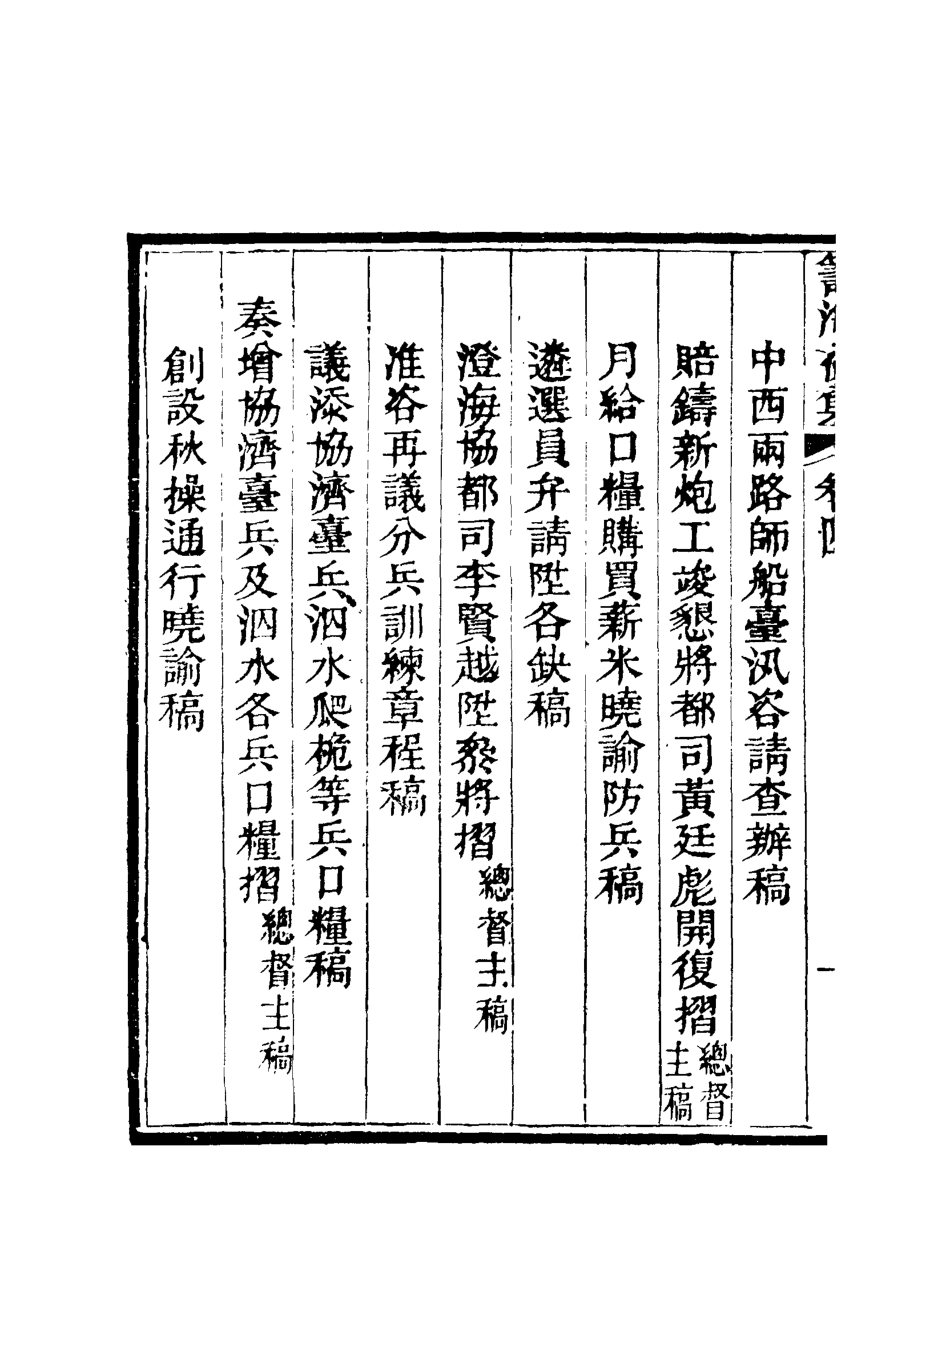 籌海初集 卷四 一
中西兩路師船臺汛咨請查辦稿
賠鑄新炮工竣懇將都司黃廷彪開復摺 總督主稿
月給口糧購買薪米曉諭防兵稿
遴選員弁請陞各缺稿
澄海協都司李賢越陞叅將摺 總督主稿
准咨再議分兵訓練章程稿
議添協濟臺兵泅水爬桅等兵口糧稿
奏增協濟臺兵及泅水各兵口糧摺 總督主稿
創設秋操通行曉諭稿